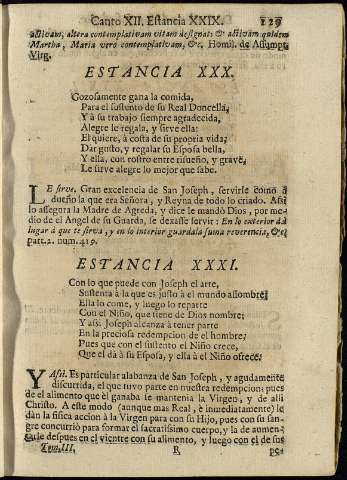 Canto XII. Estancia XXIX. 129
activam, altera contemplativam vitam designat: & activam quidem
Martha, Maria vero contemplativam, &c. Homil. de Assumpt.
Virg.
ESTANCIA XXX.
Gozosamente gana la comida,
Para el sustento de su Real Doncella,
Y à su trabajo siempre agradecida,
Alegre le regala, y sirve ella:
El quiere, à costa de su propria vida,
Dar gusto, y regalar su Esposa bella,
Y ella, con rostro entre risueño, y grave,
Le sirve alegre lo mejor que sabe.
LE sirve. Gran excelencia de San Joseph, servirle como à
dueño la que era Señora, y Reyna de todo lo criado. Assi
lo assegura la Madre de Agreda, y dice le mandò Dios, por me-
dio de el Angel de su Guarda, se dexasse servir: En lo exterior dà
lugar à que te sirva, y en lo interior guardala suma reverencia, &c.
part. 2. num. 419.
ESTANCIA XXXI.
Con lo que puede con Joseph el arte,
Sustenta à la que es justo à el mundo assombre;
Ella lo come, y luego lo reparte
Con el Niño, que tiene de Dios nombre;
Y assi Joseph alcanza à tener parte
En la preciosa redempcion de el hombre;
Pues que con el sustento el Niño crece,
Que el dà à su Esposa, y ella à el Niño ofrece.
Y Assi. Es particular alabanza de San Joseph, y agudamente
discurrida, el que tuvo parte en nuestra redempcion; pues
de el alimento que èl ganaba le mantenia la Virgen, y de alli
Christo. A este modo (aunque mas Real, è inmediatamente) le
dàn la fisica accion à la Virgen para con su Hijo, pues con su san-
gre concurriò para formar el sacratissimo cuerpo, y la de aumen-
tarle despues en el vientre con su alimento, y luego con el de sus
Tom. III. R pe-